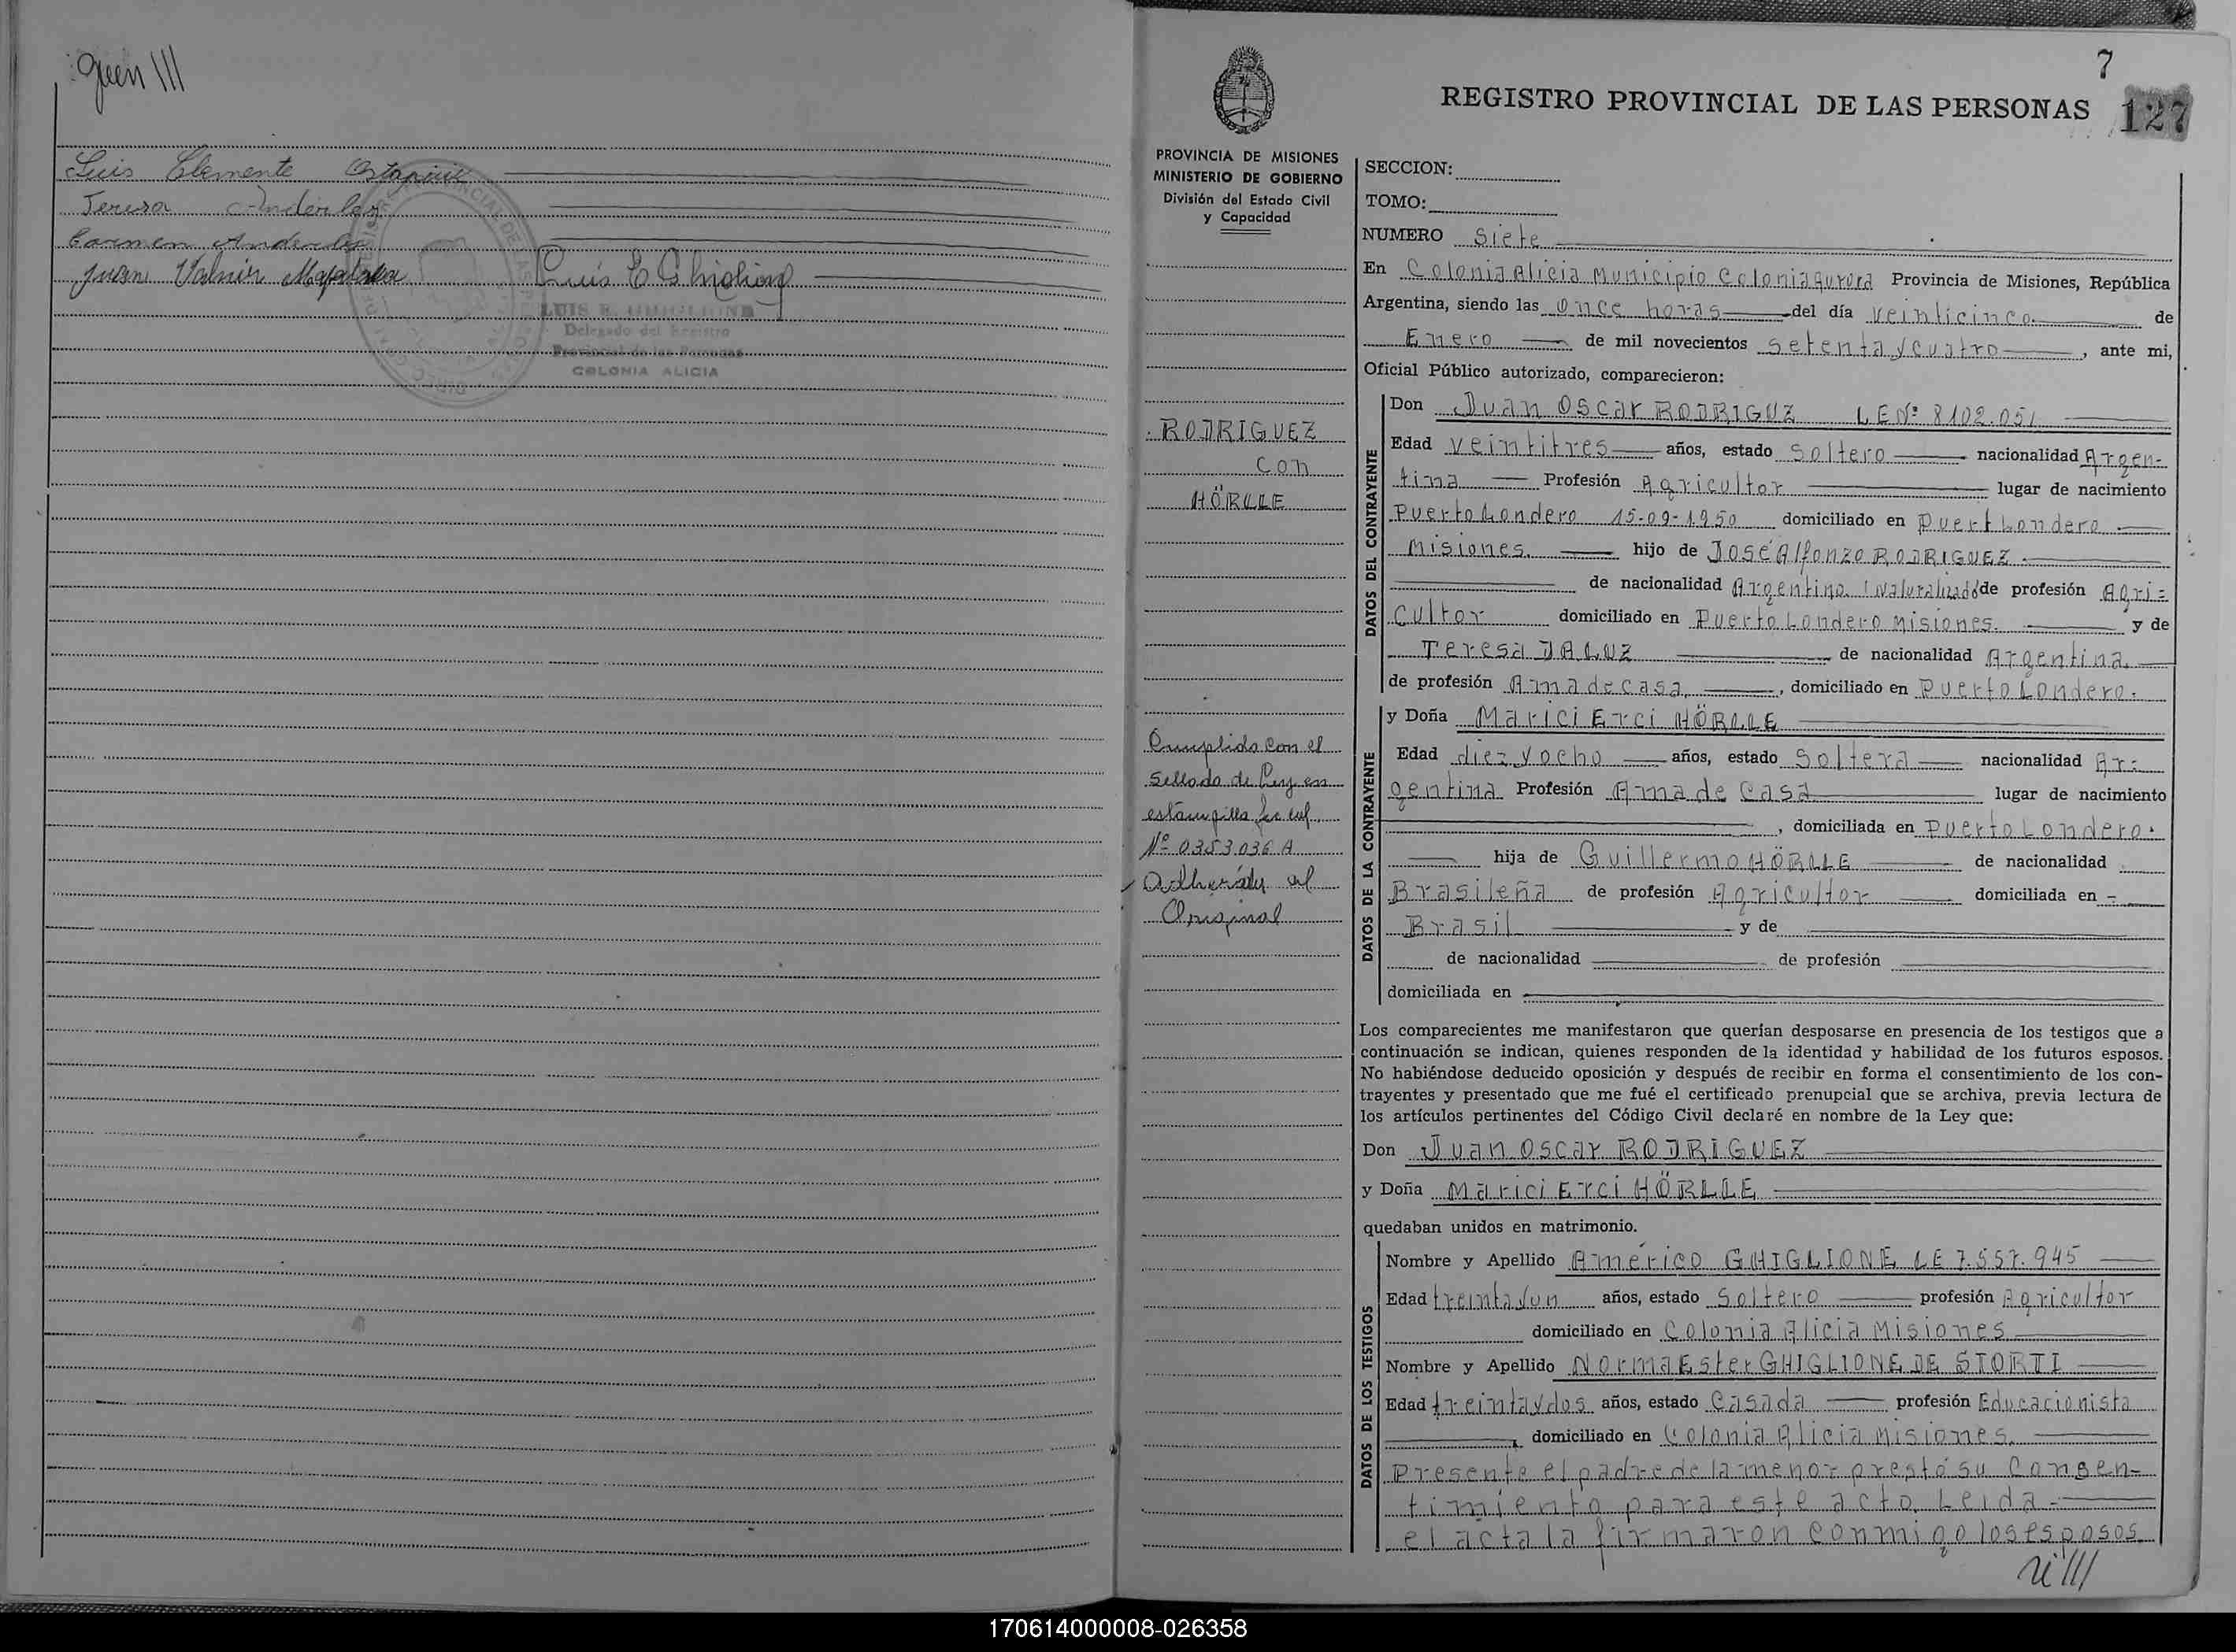 quen \\\
Luis Clemente
Teresa Anderles
Carmen Anderles
Juan Valmir
Luis E Ghiglione
LUIS E. GHIGLIONE
Delegado del Registro
Provincial de las Personas
COLONIA ALICIA
7
REGISTRO PROVINCIAL DE LAS PERSONAS 127
PROVINCIA DE MISIONES
MINISTERIO DE GOBIERNO
División del Estado Civil
y Capacidad
RODRIGUEZ
con
HÖRLLE
Cumplido con el
Sellado de Ley en
estampilla
Nº 0353.036 A
Adherida al
Original
SECCION:
TOMO:
NUMERO Siete
En Colonia Alicia Municipio Colonia Aurora Provincia de Misiones, República
Argentina, siendo las Once horas del día veinticinco de
Enero de mil novecientos setenta y cuatro, ante mi,
Oficial Público autorizado, comparecieron:
DATOS DEL CONTRAYENTE
Don Juan Oscar RODRIGUZ LE Nº 8102.051
Edad veintitres años, estado Soltero nacionalidad Argen-
tina Profesión Agricultor lugar de nacimiento
Puerto Londero 15-09-1950 domiciliado en Puert Londero
Misiones. hijo de José Alfonzo RODRIGUEZ.
de nacionalidad Argentina (Naturalizado) de profesión Agri=
cultor domiciliado en Puerto Londero Misiones. y de
Teresa DALUZ de nacionalidad Argentina.
de profesión Ama de casa, domiciliado en Puerto Londero.
DATOS DE LA CONTRAYENTE
y Doña Marici Erci HÖRLLE
Edad diez y ocho años, estado Soltera nacionalidad Ar=
gentina Profesión Ama de Casa lugar de nacimiento
, domiciliada en Puerto Londero.
hija de Guillermo HÖRLLE de nacionalidad
Brasileña de profesión Agricultor domiciliada en -
Brasil y de
de nacionalidad de profesión
domiciliada en
Los comparecientes me manifestaron que querían desposarse en presencia de los testigos que a
continuación se indican, quienes responden de la identidad y habilidad de los futuros esposos.
No habiéndose deducido oposición y después de recibir en forma el consentimiento de los con-
trayentes y presentado que me fué el certificado prenupcial que se archiva, previa lectura de
los artículos pertinentes del Código Civil declaré en nombre de la Ley que:
Don Juan Oscar RODRIGUEZ
y Doña Marici Erci HÖRLLE
quedaban unidos en matrimonio.
DATOS DE LOS TESTIGOS
Nombre y Apellido Américo GHIGLIONE LE 7.557.945
Edad treinta y un años, estado Soltero profesión Agricultor
domiciliado en Colonia Alicia Misiones
Nombre y Apellido Norma Ester GHIGLIONE DE STORTI
Edad treinta y dos años, estado Casada profesión Educacionista
, domiciliado en Colonia Alicia Misiones.
Presente el padre de la menor prestó su Consen-
timiento para este acto. Leida
el acta la firmaron conmigo los esposos
170614000008-026358